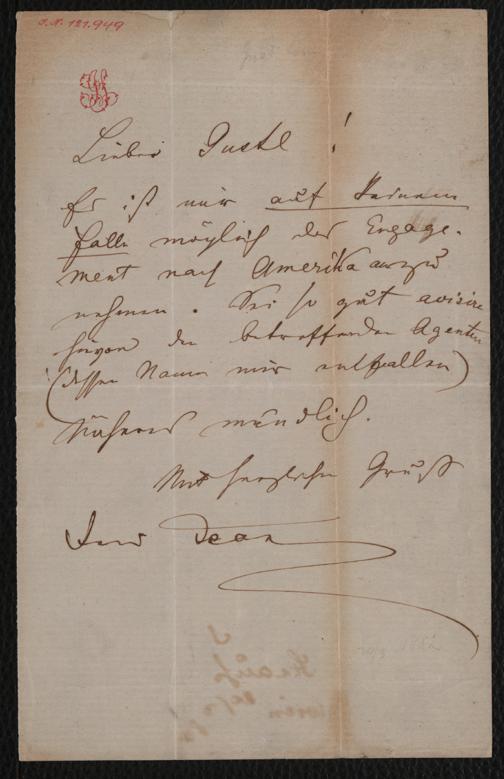 I.N. 121.949
JS
Lieber Gustl!
Es ist mir auf keinem
Falle möglich das Engage-
ment nach Amerika anzu
nehmen. Sei so gut avisire
hievon den betreffenden Agenten
(dessen Name mir entfallen)
Näheres mündlich.
Mit herzlichem Gruß
Dein Jean